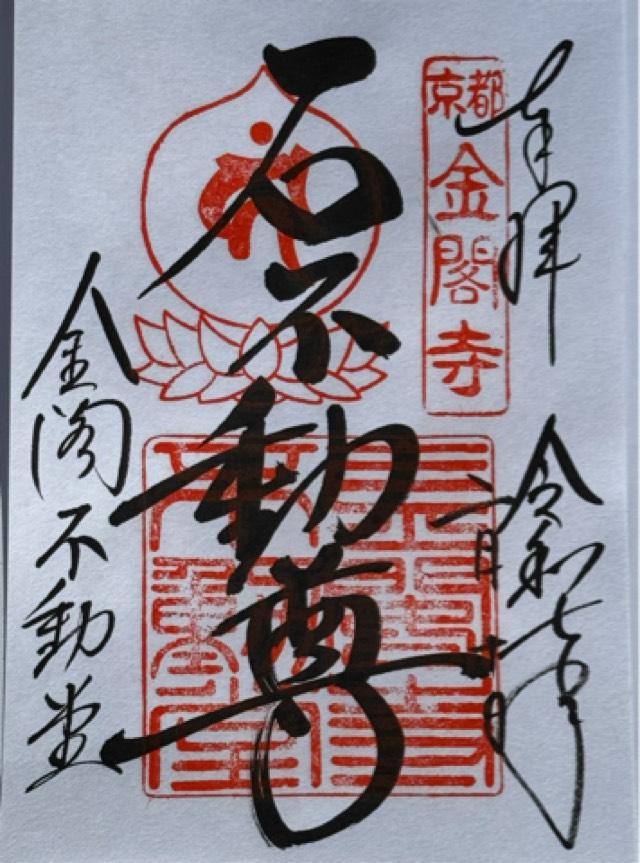 奉拝
令和七年
二月
京都
金閣寺
石不動尊
金閣不動堂